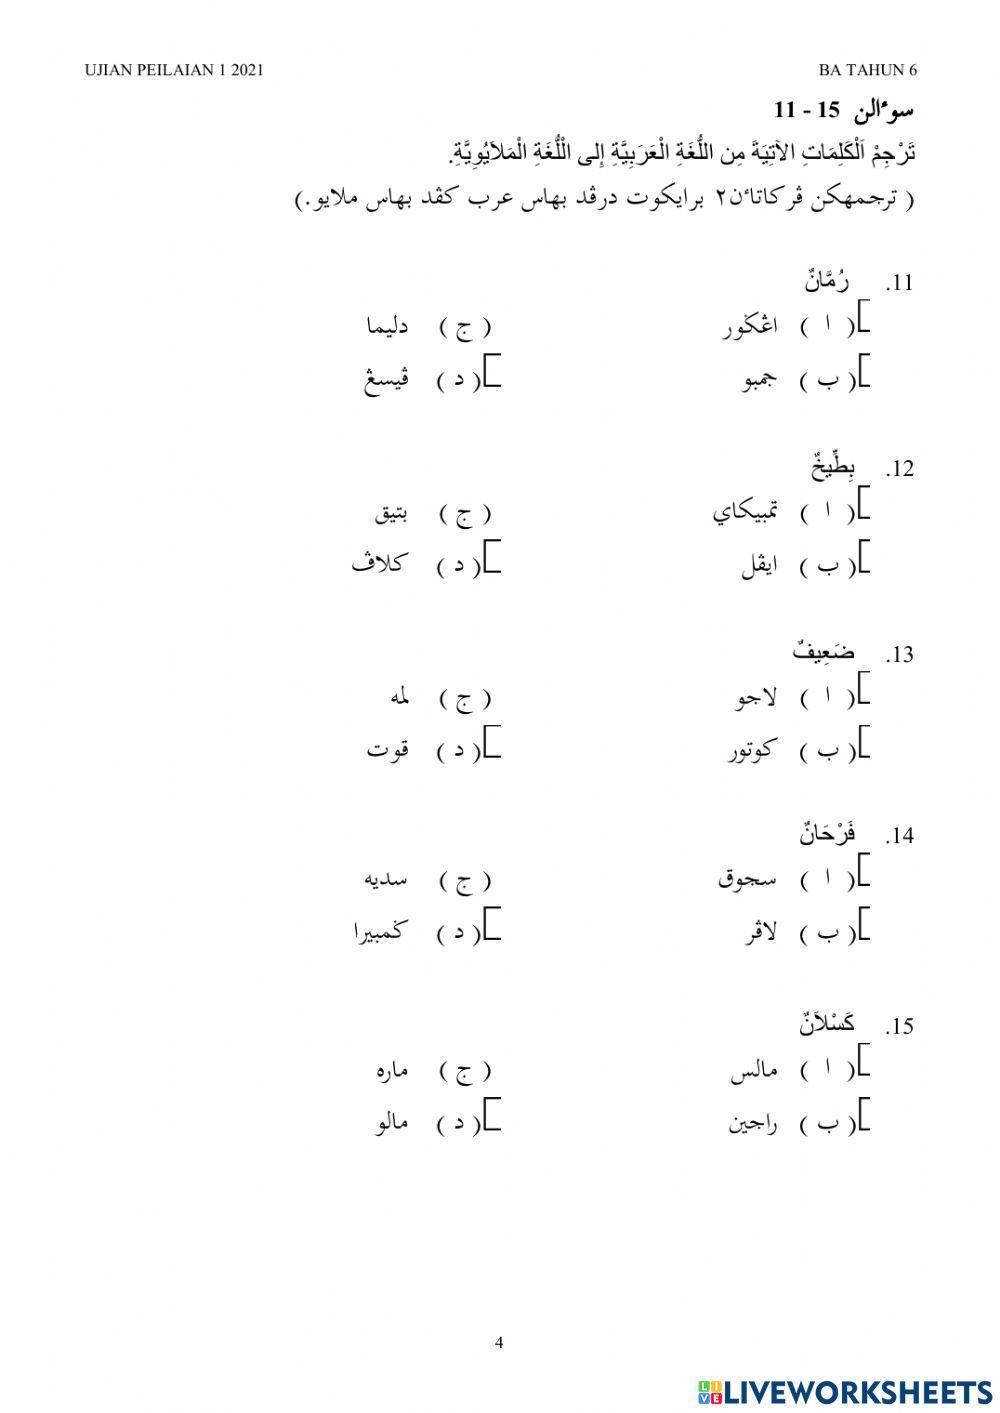 UJIAN PEILAIAN 1 2021 BA TAHUN 6
سوءالن 15 - 11
تَرْجِمْ اَلْكَلِمَاتِ الآتِيَةَ مِن اللُّغَةِ الْعَرَبِيَّةِ إِلى اللُّغَةِ الْمَلاَيُوِيَّةِ.
( ترجمهكن ڤركاتاءن٢ برايكوت درڤد بهاس عرب كڤد بهاس ملايو.)
11. رُمَّانٌ
( ا ) اڠݢور ( ج ) دليما
( ب ) جمبو ( د ) ڤيسڠ
12. بِطِّيخٌ
( ا ) تمبيكاي ( ج ) بتيق
( ب ) ايڤل ( د ) كلاڤ
13. ضَعِيفٌ
( ا ) لاجو ( ج ) لمه
( ب ) كوتور ( د ) قوت
14. فَرْحَانٌ
( ا ) سجوق ( ج ) سديه
( ب ) لاڤر ( د ) ݢمبيرا
15. كَسْلاَنٌ
( ا ) مالس ( ج ) ماره
( ب ) راجين ( د ) مالو
4
LIVE LIVEWORKSHEETS